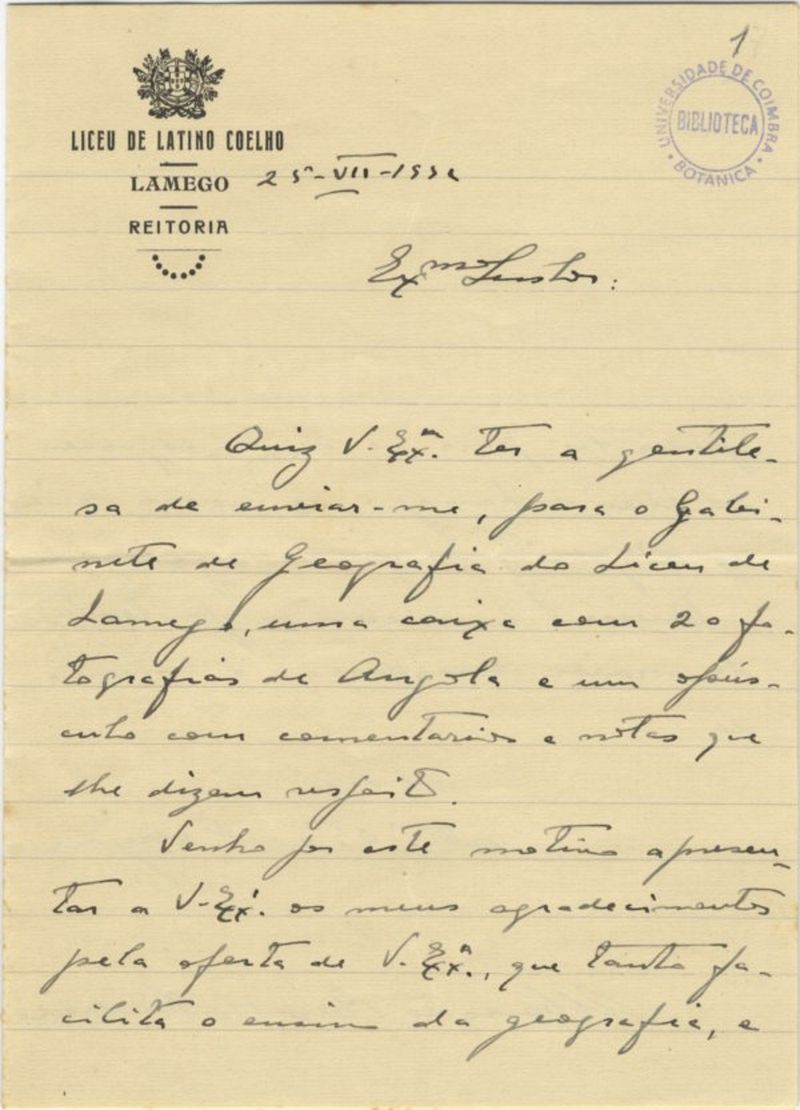 1
UNIVERSIDADE DE COIMBRA
BIBLIOTECA
BOTANICA
LICEU DE LATINO COELHO
LAMEGO
25-VII-193
REITORIA
Exmo Senhor:
Quiz V. Exª. ter a gentile-
sa de enviar-me, para o Gabi-
nete de Geografia do Liceu de
Lamego, uma caixa com 20 fo-
tografias de Angola e um opús-
culo com comentarios e notas que
lhe dizem respeito.
Venho por este motivo apresen-
tar a V. Exª. os meus agradecimentos
pela oferta de V. Exª., que tanto fa-
cilita o ensino da geografia, e